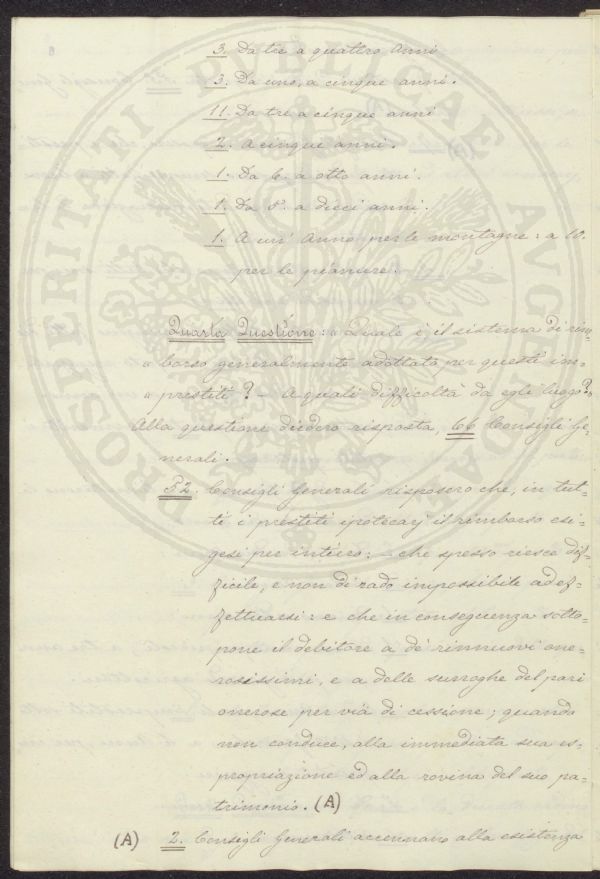 3. Da tre a quattro Anni
3. Da uno, a cinque anni.
11. Da tre a cinque anni
2. A cinque anni.
1. Da 6. a otto anni.
1. Da 8. a dieci anni.
1. A un' Anno per le montagne: a 10.
per le pianure.
Quarta Questione: "Quale è il sistema di rim"
"borso generalmente adottato per questi im="
"prestiti? – A quali difficoltà dà egli luogo?"
Alla questione diedero risposta, 66 Consigli Ge=
nerali.
52. Consigli Generali risposero che, in tut=
ti i prestiti ipotecarj il rimborso esi=
gesi per intiero: – che spesso riesce dif=
ficile, e non di rado impossibile ad ef=
fettuarsi: e che in conseguenza sotto=
pone il debitore a de' rinnuovi one=
rosissimi, e a delle surroghe del pari
onerose per via di cessione; quando
non conduce, alla immediata sua es=
propriazione ed alla rovina del suo pa=
trimonio. (A)
(A) 2. Consigli Generali accennano alla esistenza
PROSPERITATI PUBLICAE AUGENDAE